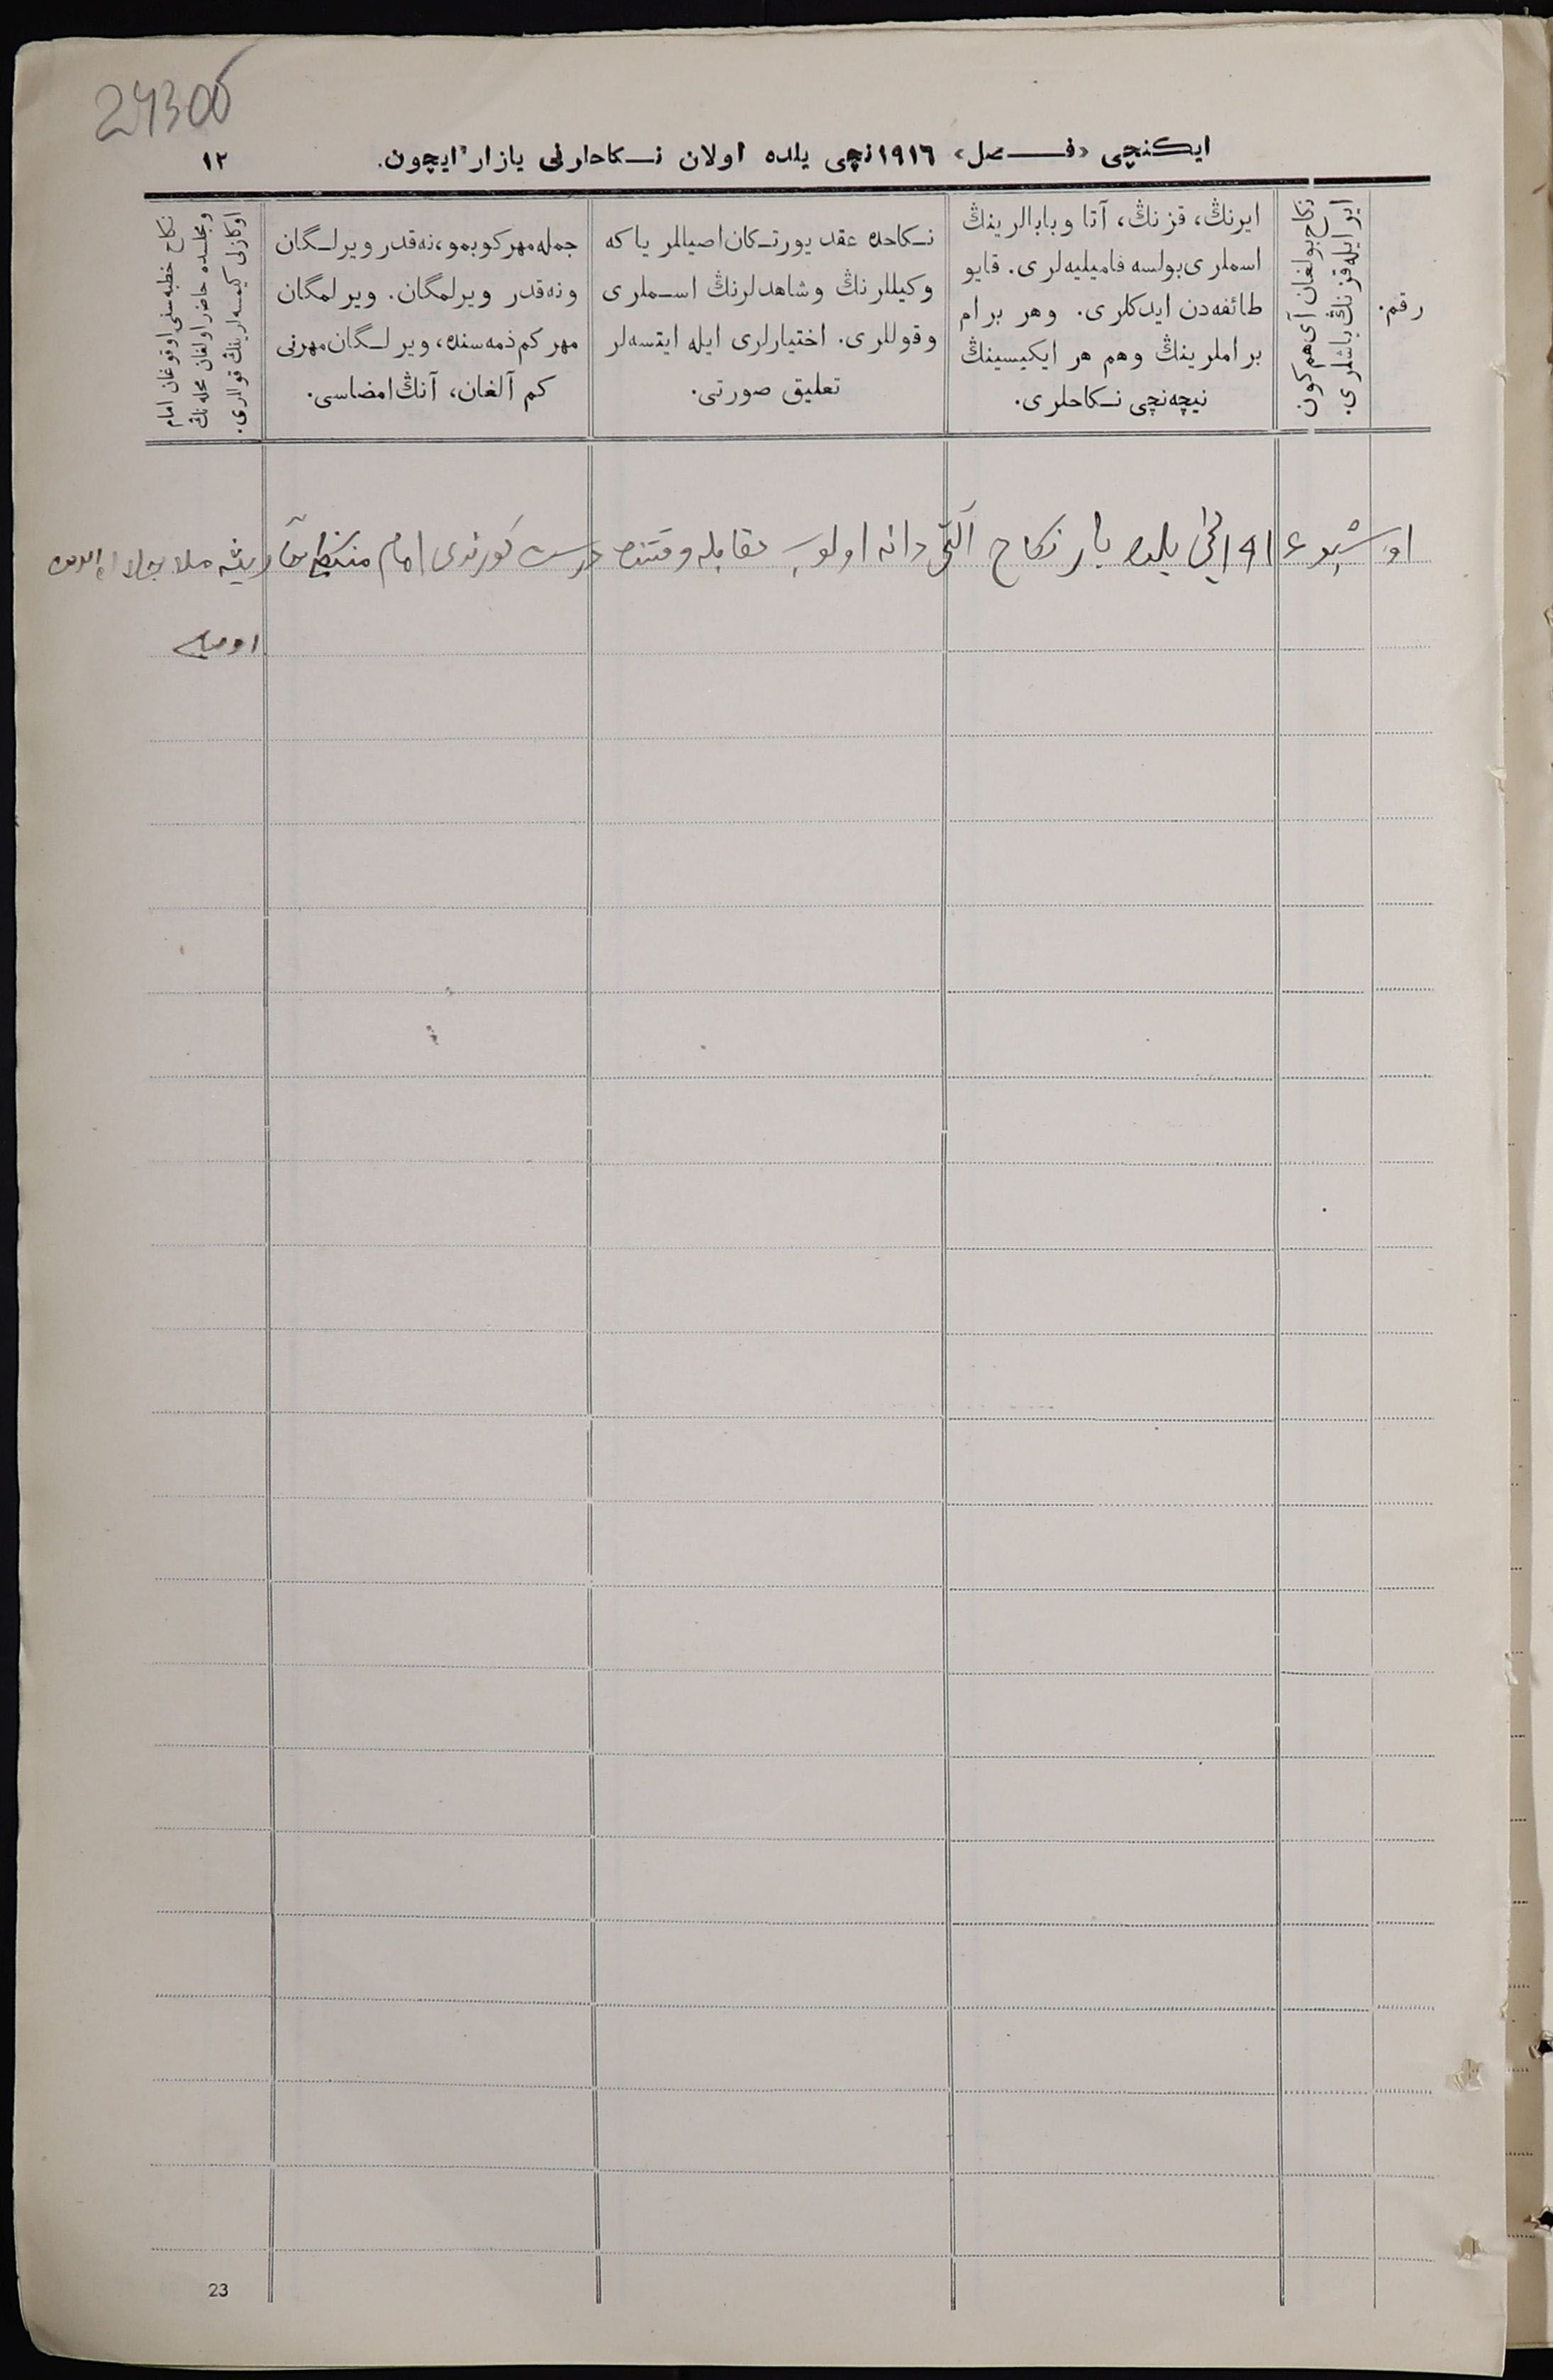 2430об
ایکنچی «فصل» ١٩١٦نچی یلده اولان نکاحلرنی یازار ایچون.
١٢
رقم.
نکاح بولغان آی هم کون
ایر ایله قزنڭ یاشلری.
ایرنڭ، قزنڭ، آتا و بابالرینڭ
اسملری بولسه فامیلیه‌لری. قایو
طائفه‌دن ایدکلری. وهر برام
براملرینڭ وهم هر ایکیسینڭ
نیچه‌نچی نکاحلری.
نکاحده عقد یورتکان اصیللر یا که
وکیللرنڭ وشاهدلرنڭ اسملری
وقوللری. اختیارلری ایله ایتسه‌لر
تعلیق صورتی.
جمله مهر کوبمو، نه‌قدر ویرلگان
ونه‌قدر ویرلمگان. ویرلمگان
مهر کم ذمه‌سنده، ویرلگان مهرنی
کم آلغان، آنڭ امضاسی.
نکاح خطبه‌سنی اوقوغان امام
ومجلسده حاضر اولغان محله‌نڭ
اوکازلی کیمسه‌لرینڭ قوللری.
اوشبو ١٩١٦ نچی یلده بار نکاح آلتی دانه اولوب مقابله وقتنده درست کورندی امام ملا
23